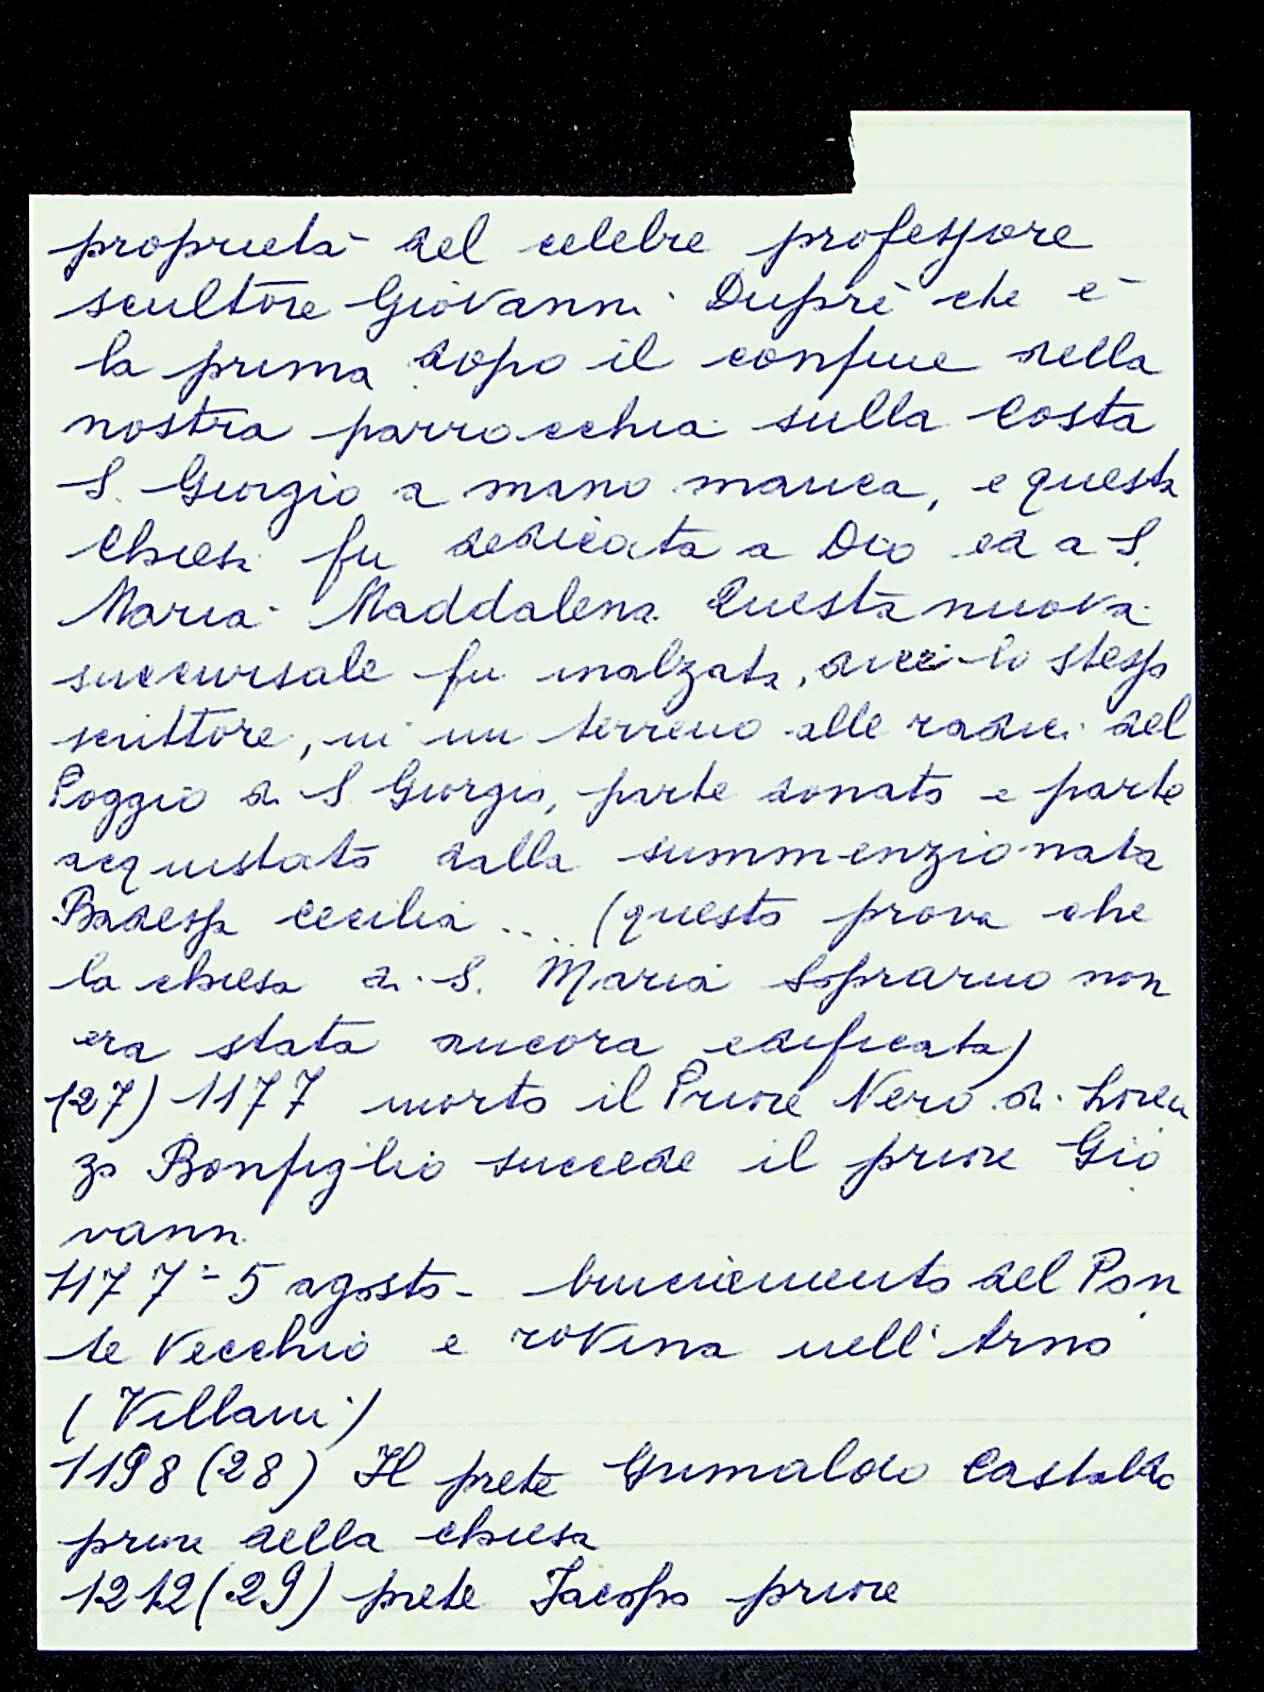 proprietà del celebre professore
scultore Giovanni Duprè che è
la prima dopo il confine della
nostra parrocchia sulla Costa
S. Giorgio a mano manca, e questa
Chiesa fu dedicata a Dio ed a S.
Maria Maddalena. Questa nuova
succursale fu inalzata, dice lo stesso
scrittore, in un terreno alle radici del
Poggio di S Giorgio, parte donato e parte
acquistato dalla summenzionata
Badessa Cecilia .... (questo prova che
la chiesa di S. Maria Soprarno non
era stata ancora edificata)
(27) 1177 morto il Priore Nero di Loren
zo Bonfiglio succede il priore Gio
vanni
1177 - 5 agosto - bruciamento del Pon
te Vecchio e rovina nell'Arno
(Villani)
1198 (28) Il prete Grimaldo Castaldo
priore della chiesa
1212 (29) prete Jacopo priore